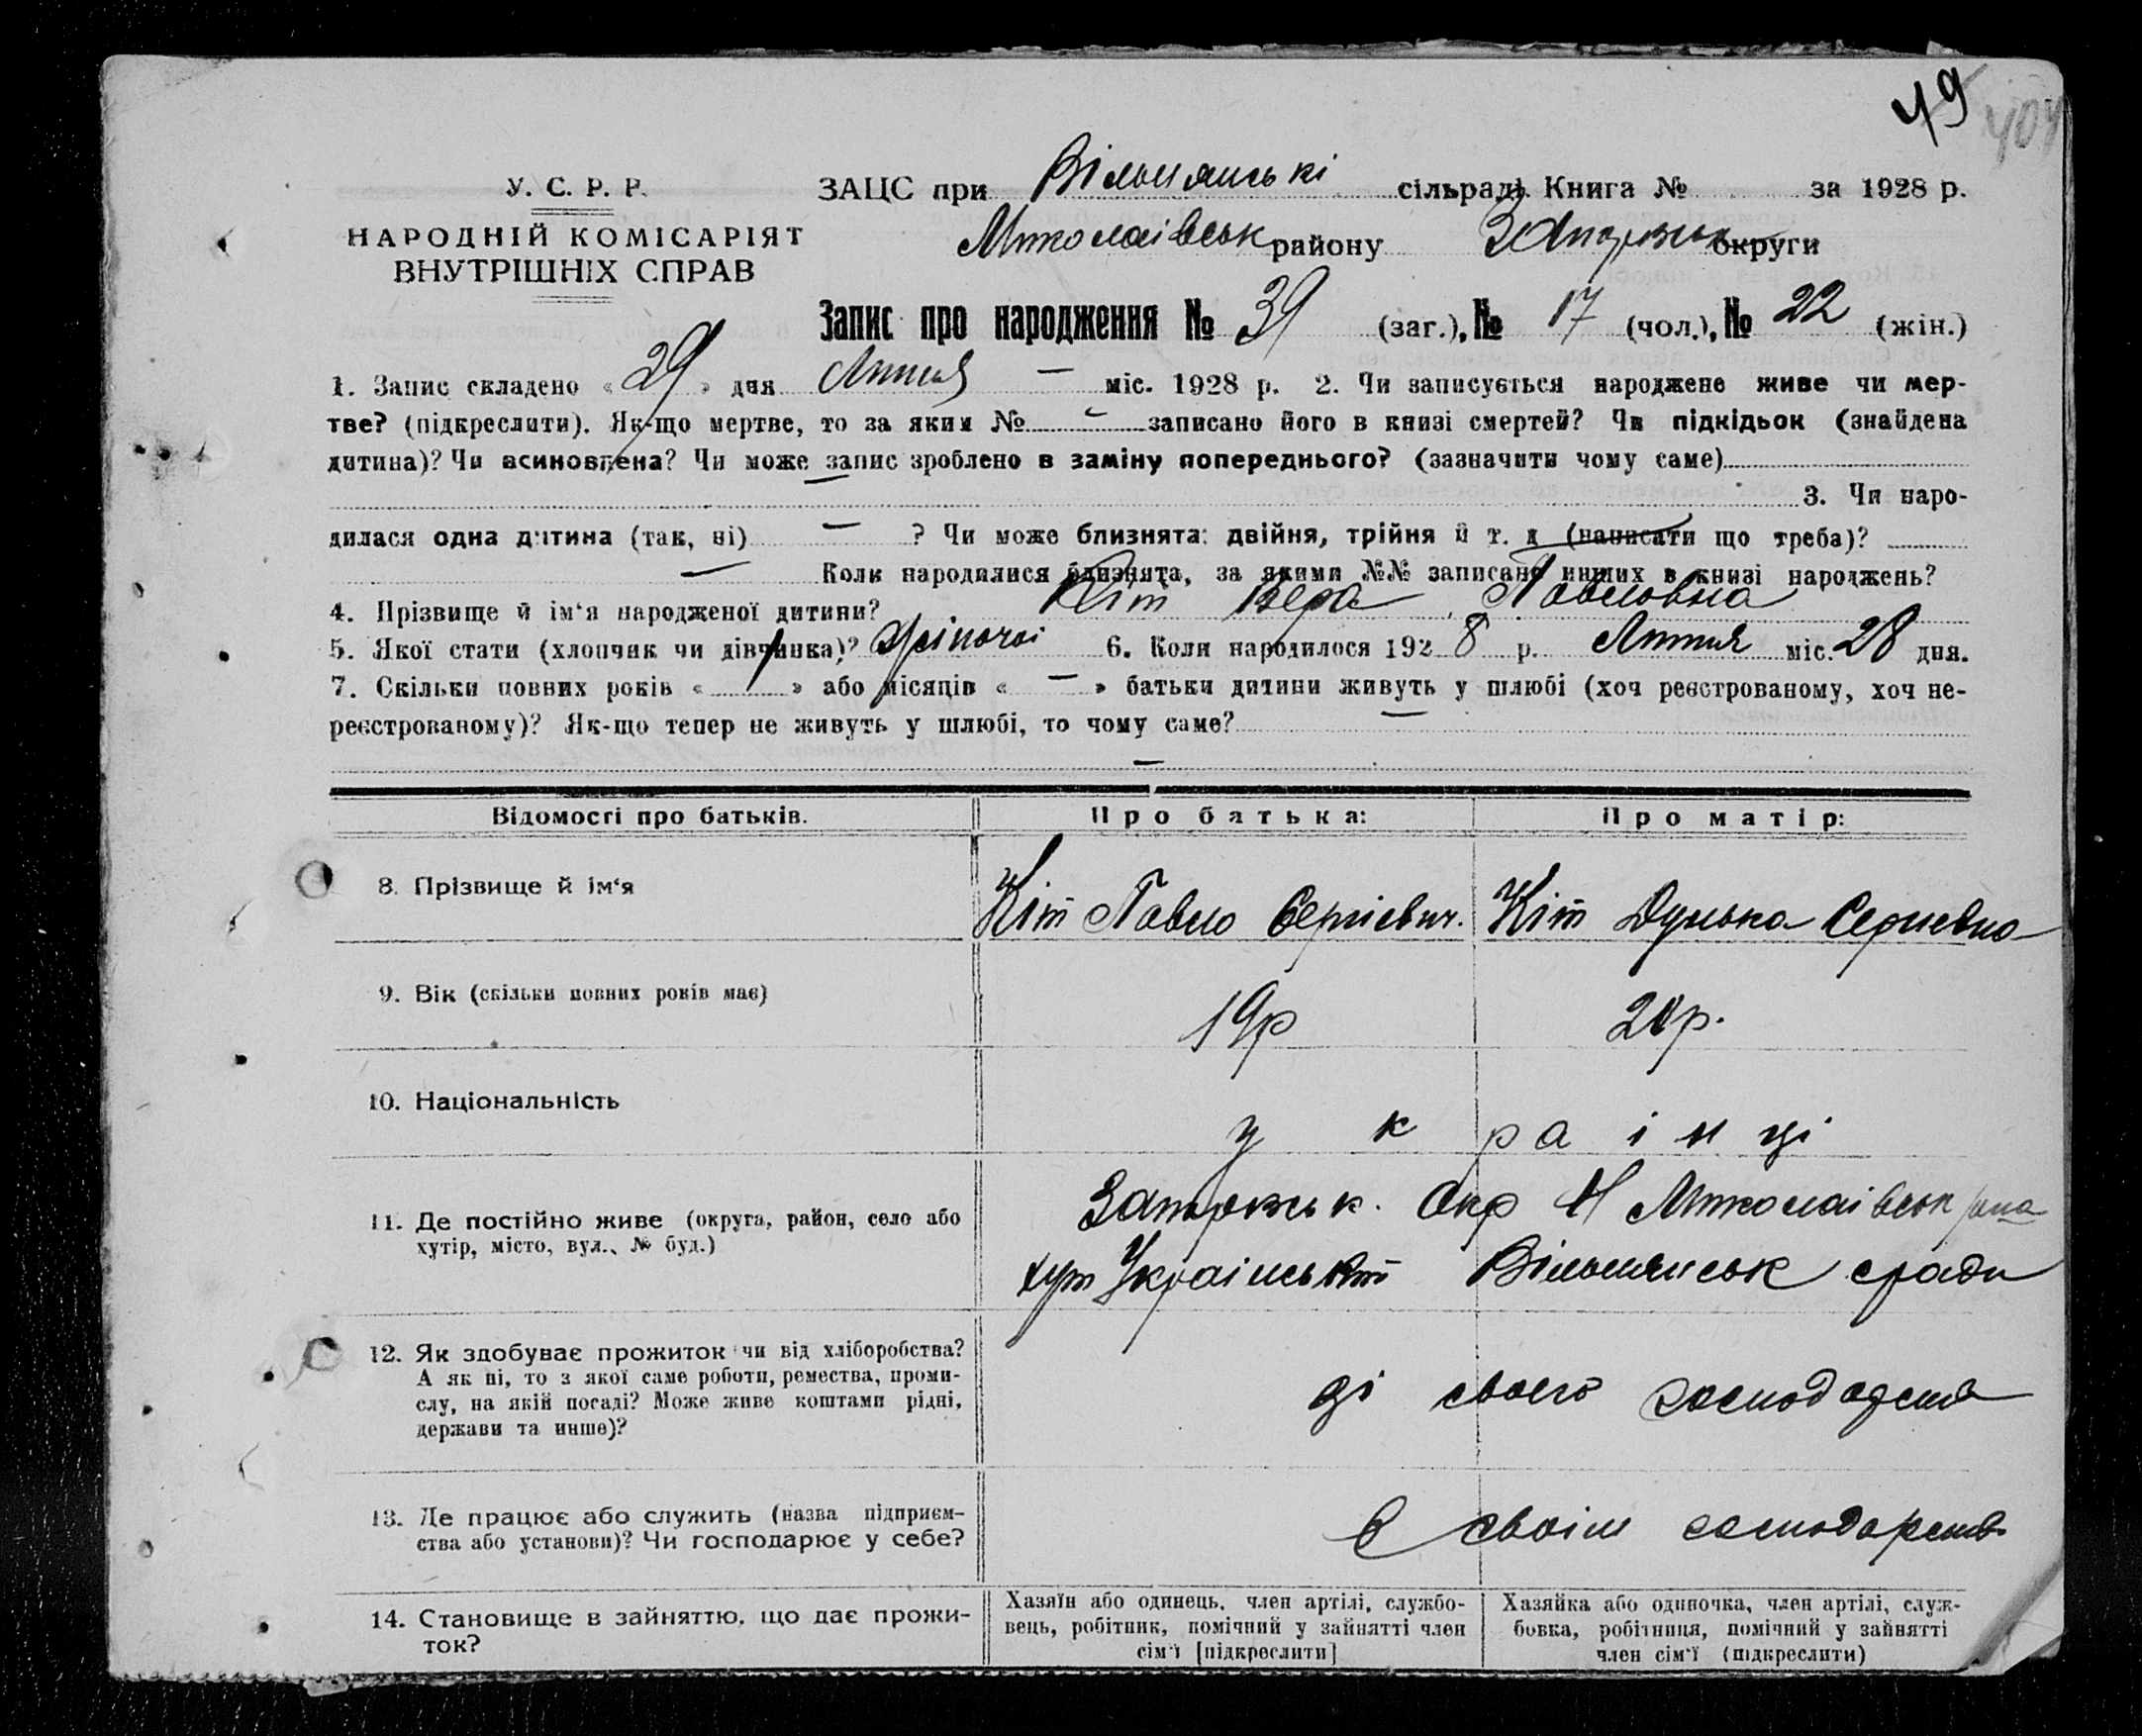 49
404
У. С. Р. Р.
НАРОДНІЙ КОМІСАРІЯТ
ВНУТРІШНІХ СПРАВ
ЗАЦС при Вільнянські сільраді. Книга № за 1928 р.
Миколаівськ району Запорізьк округи
Запис про народження № 39 (заг.), № 17 (чол.), № 22 (жін.)
1. Запис складено « 29 » дня Липня — міс. 1928 р. 2. Чи записується народжене живе чи мер-
тве? (підкреслити). Як-що мертве, то за яким № - записано його в книзі смертей? Чи підкідьок (знайдена
дитина)? Чи всиновлена? Чи може запис зроблено в заміну попереднього? (зазначити чому саме)
— 3. Чи наро-
дилася одна дитина (так, ні) — ? Чи може близнята: двійня, трійня й т. д (написати що треба)?
— Коли народилися близнята, за якими №№ записано инших в книзі народжень?
4. Прізвище й ім‘я народженої дитини? Кіт Вера Павловна
5. Якої стати (хлопчик чи дівчинка)? жіночоі 6. Коли народилося 1928 р. Липня міс. 28 дня.
7. Скільки повних років « 1 » або місяців « — » батьки дитини живуть у шлюбі (хоч реєстрованому, хоч не-
реєстрованому)? Як-що тепер не живуть у шлюбі, то чому саме? —
—
Відомості про батьків. Про батька: Про матір:
8. Прізвище й ім‘я Кіт Павло Сергієвич. Кіт Дунька Сергиевна
9. Вік (скільки повних років має) 19р р.
10. Національність украінці
11. Де постійно живе (округа, район, село або
хутір, місто, вул., № буд.)
Запорізьк. Окр Н Миколаівськ рна
хут Украінський Вільнянськ сради
12. Як здобуває прожиток чи від хліборобства?
А як ні, то з якої саме роботи, ремества, проми-
слу, на якій посаді? Може живе коштами рідні,
держави та инше)?
зі свого господарства
13. Де працює або служить (назва підприєм-
ства або установи)? Чи господарює у себе?
в своім господарств
14. Становище в зайняттю, що дає прожи-
ток?
Хазяїн або одинець, член артілі, службо-
вець, робітник, помічний у зайнятті член
сім‘ї [підкреслити]
Хазяйка або одиночка, член артілі, служ-
бовка, робітниця, помічний у зайнятті
член сім‘ї (підкреслити)